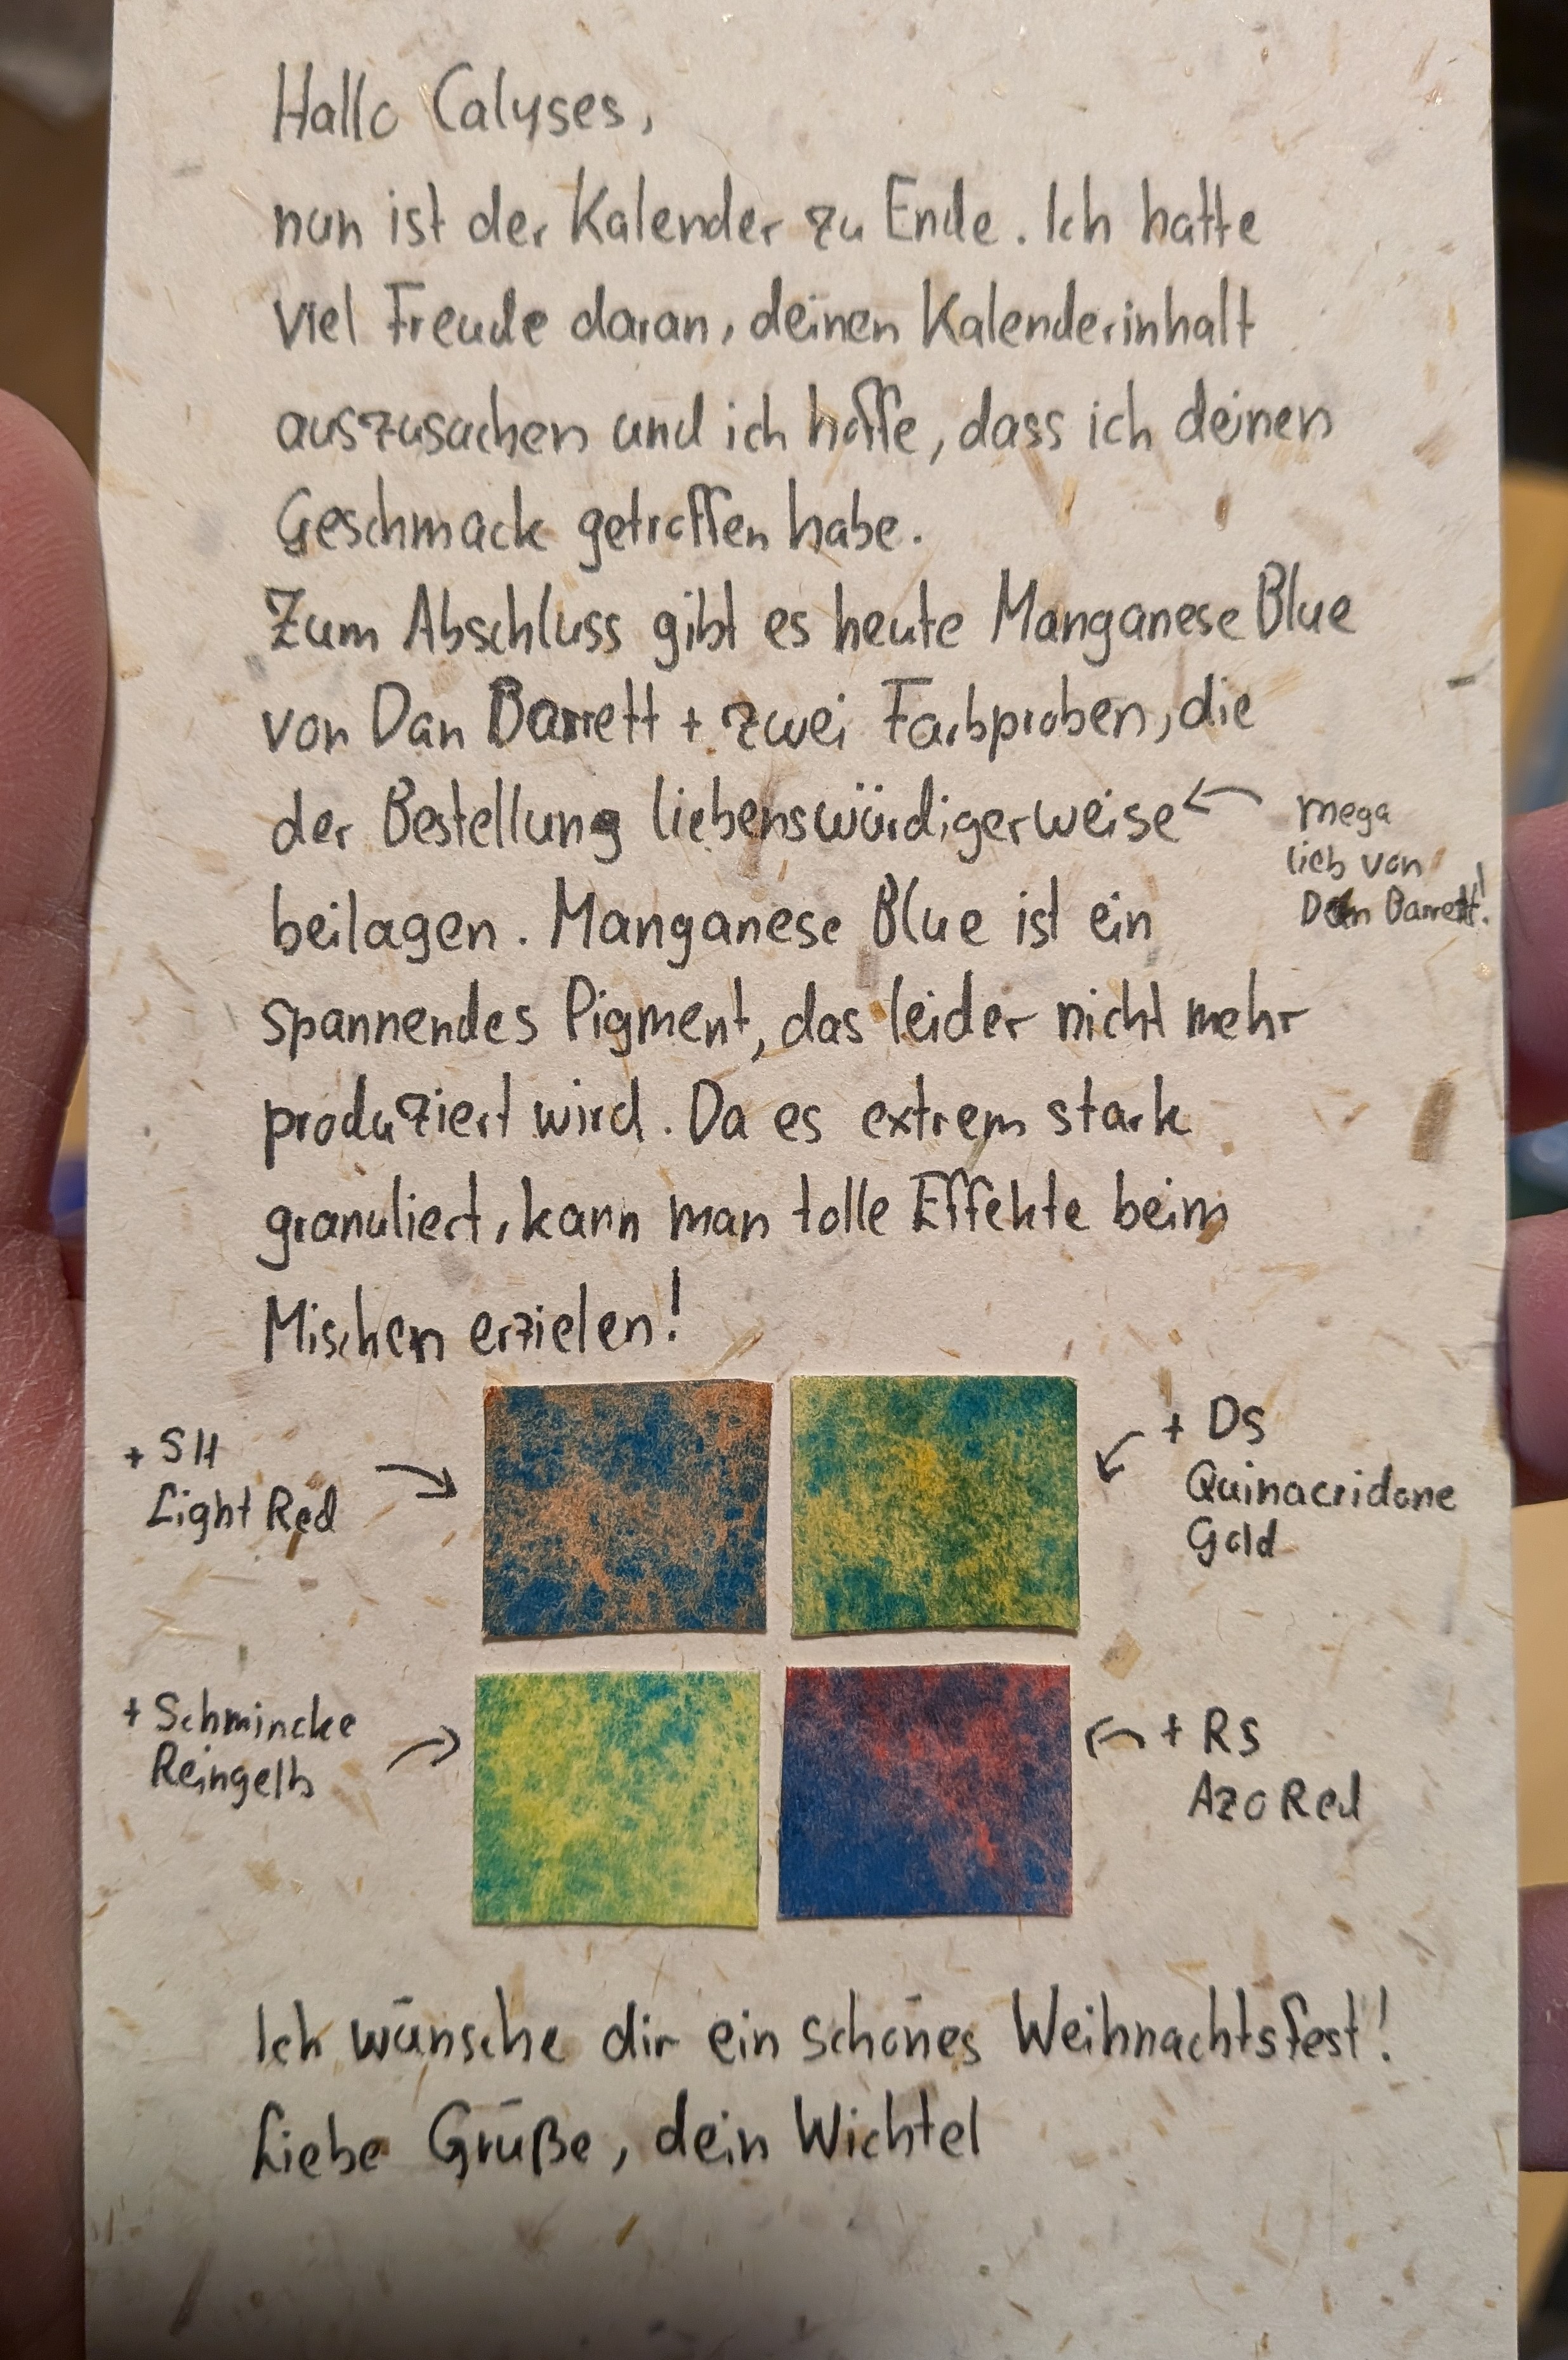 Hallo Calyses,
nun ist der Kalender zu Ende. Ich hatte
viel Freude daran, deinen Kalenderinhalt
auszusuchen und ich hoffe, dass ich deinen
Geschmack getroffen habe.
Zum Abschluss gibt es heute Manganese Blue
von Dan Barrett + zwei Farbproben, die
der Bestellung liebenswürdigerweise
mega
lieb von
Dan Barrett!
beilagen. Manganese Blue ist ein
spannendes Pigment, das leider nicht mehr
produziert wird. Da es extrem stark
granuliert, kann man tolle Effekte beim
Mischen erzielen!
+ SH
Light Red
+ DS
Quinacridone
Gold
+ Schmincke
Reingelb
+ RS
Azo Red
Ich wünsche dir ein schönes Weihnachtsfest!
Liebe Grüße, dein Wichtel